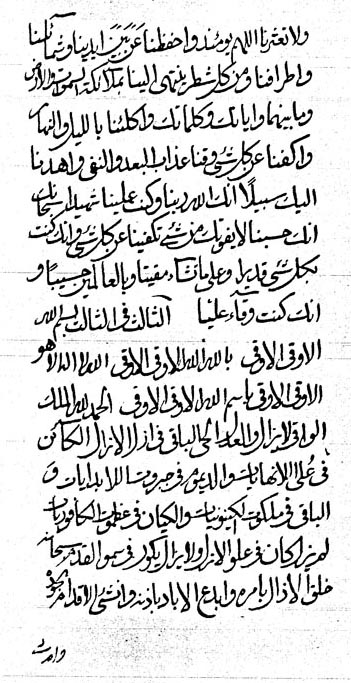 ولا تعثرنا اللهم يومئذ واحفظنا عن يمين ايدينا وشمائلنا
واطرافنا ومن كل شطر ينتهى الينا بملائكة السموات والارض
وما بينهما واياتك وكلماتك واكلئنا بالليل والنهار
واكفنا عن كل شئ وقنا عذاب البعد والنفى واهدنا
اليك سبيلا انك الله ربنا وكنت علينا شهيدا سبحانك
انك حسبنا لا يفوتك من شئ تكفينا عن كل شئ وانك كنت
بكل شئ قديرا وعلى ما تشاء مقيتا وبالعالمين حسيبا و
انك كنت وقاء علينا الثالث فى الثالث بسم الله
الاوقى الاوقى بالله الله الاوقى الاوقى الله لا اله الا هو
الاوقى الاوقى باسم الله الاوقى الاوقى الحمد لله الملك
الواقى الازال والعدل الحى الباقى فى ازل الازال الكائن
فى علا اللانهايات والديوم فى جبروت اللابدايات و
الباقى فى ملكوت الكينونيات والكيان فى الكافوريات
لم يزل كان فى علو الازل ولا يزال يكون فى سمو القدم سبحانه
خلق الازال بامره وابدع الاباد باذنه وانشئ الاقدام